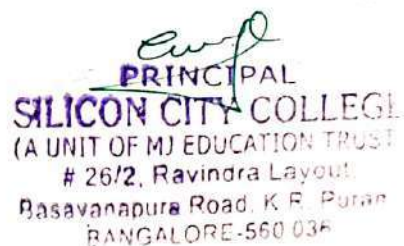 PRINCIPAL
SILICON CITY COLLEGE
(A UNIT OF MJ EDUCATION TRUST
# 26/2, Ravindra Layout
Basavanapura Road, K R Puran
BANGALORE-560 036